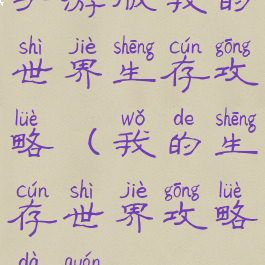 游版我的
shì jiè shēng cún gōng
世界生存攻
lüè wǒ de shēng
略(我的生
cún shì jiè gōng lüè
存世界攻略
dà quán